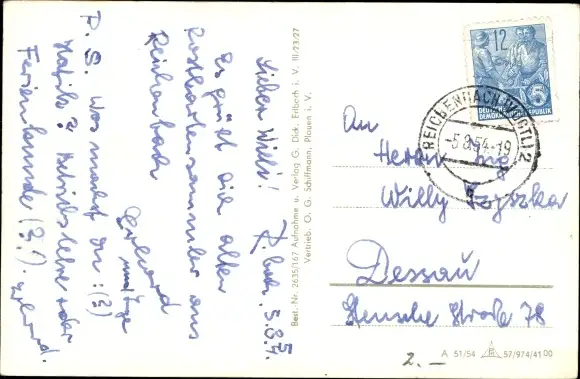 Lieber Willi!
5.8.54.
Es grüßt die alten
Postkartensammler aus
Reichenbach
Gerhard
P. S. Was machst du: (?)
Mathik? Betriebslehre oder
Ferienkunde (?!). Gerhard.
Best.-Nr. 2635/167 Aufnahme u. Verlag G. Dick, Erlbach i. V. III/23/27
Vertrieb: O. G. Schiffmann, Plauen i. V.
12
DEUTSCHE
DEMOKRATISCHE REPUBLIK
5
REICHENBACH (VOGTL) 2
-5.8.54-19
An
Herrn Ing
Willy
Dessau
Straße 78
2.—
A 51/54 57/974/41 00